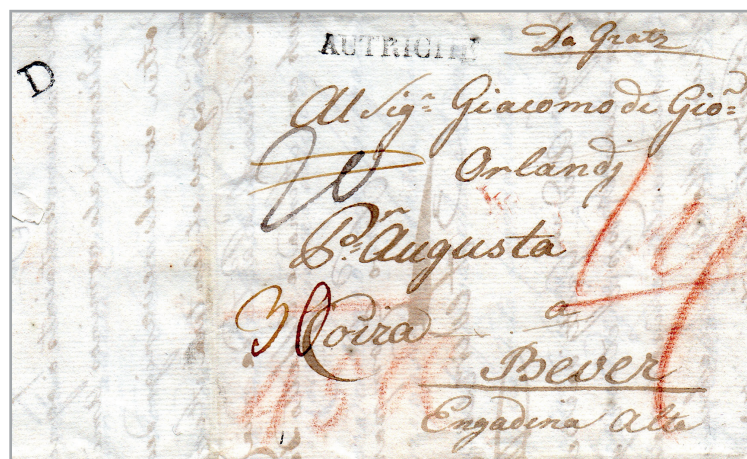 D
AUTRICHE
Da Gratz
Al Sigr. Giacomo di Gio:
Orlandj
Pr. Augusta
30
Coira
a
Bever
Engadina Alta